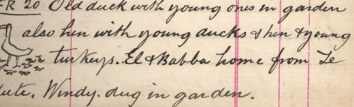 FR 20 Old duck with young ones in garden
also hen with young ducks & hen & young
turkeys. El & Babba home from Te
. Windy. dug in garden.